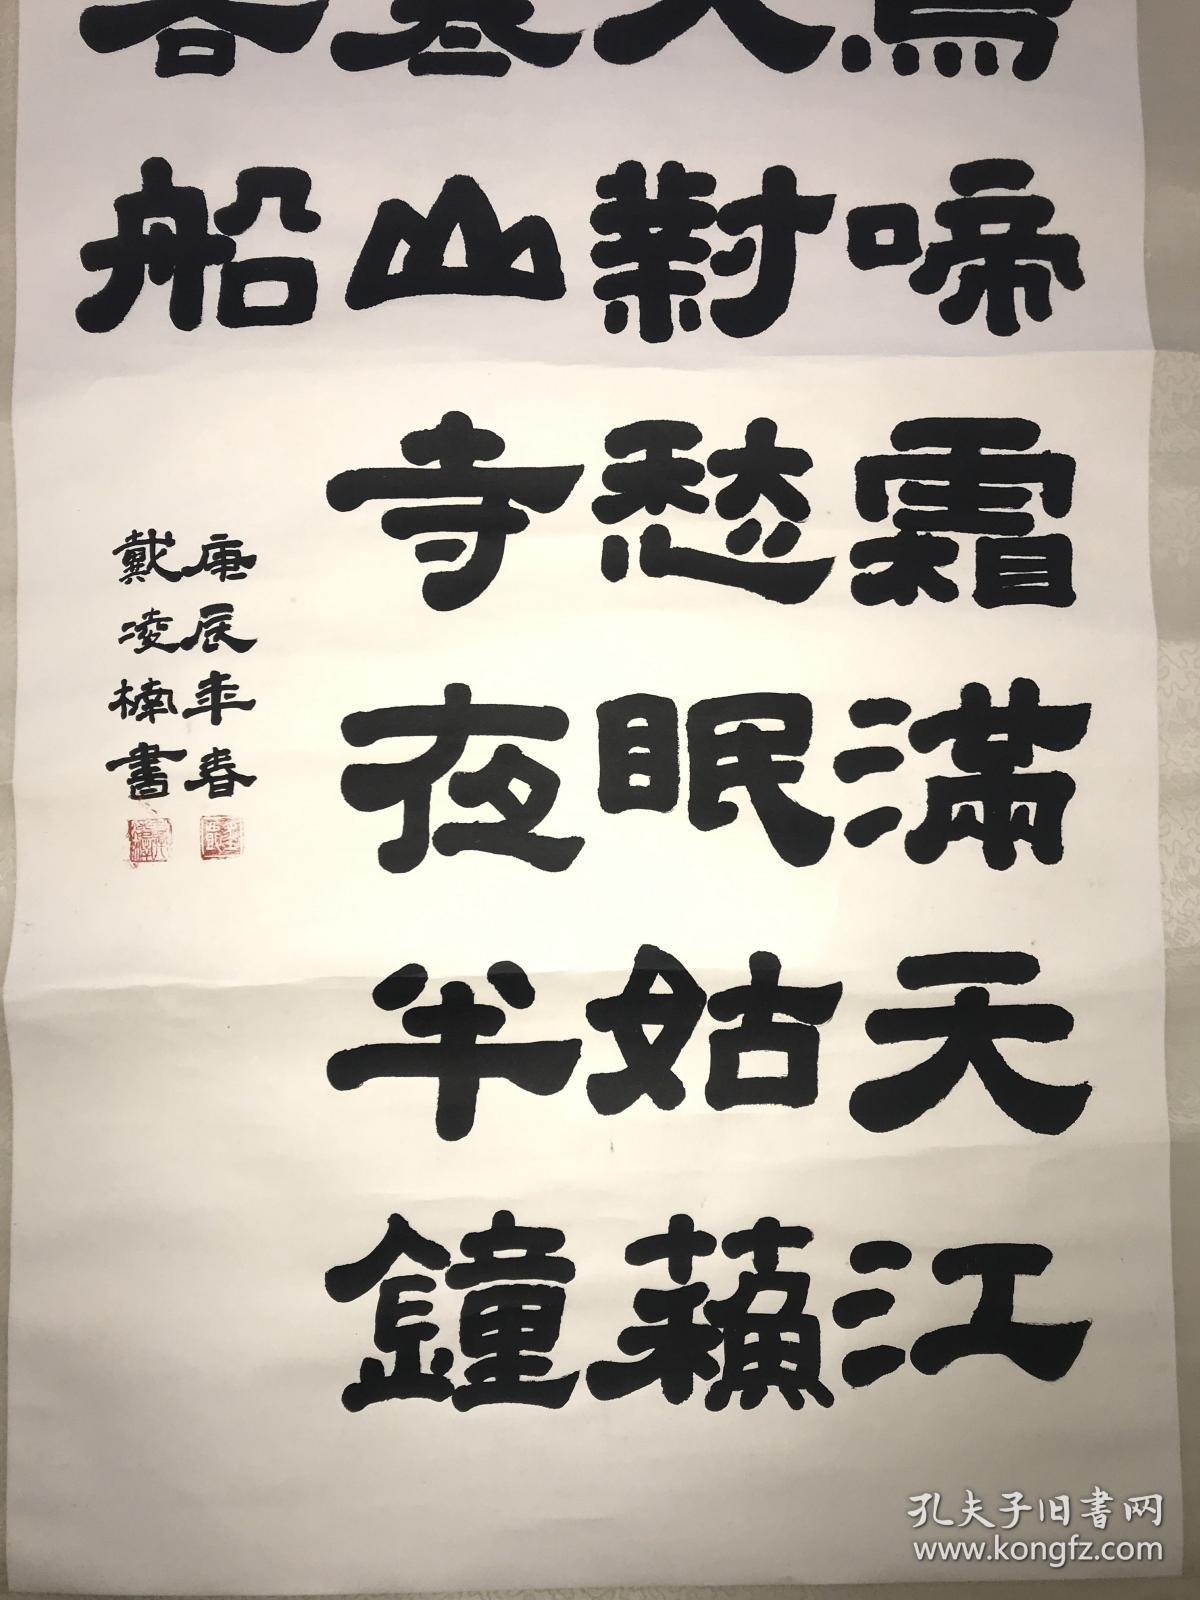 烏啼霜滿天江
火對愁眠姑蘓
寒山寺夜半鐘
客船
庚辰年春
戴凌楠書
孔夫子旧書网
www.kongfz.com